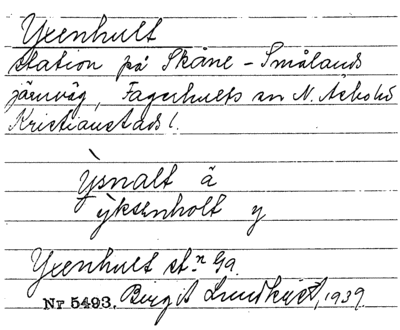 Yxenhult
station på Skåne - Smålands
järnväg, Fagerhults sn N. Åsbohd
Kristianstads l.
ỳsnalt ä
ỳksenholt y
Yxenhult st.n Ga.
Nr 5493. Birgit Lundkvist, 1939.